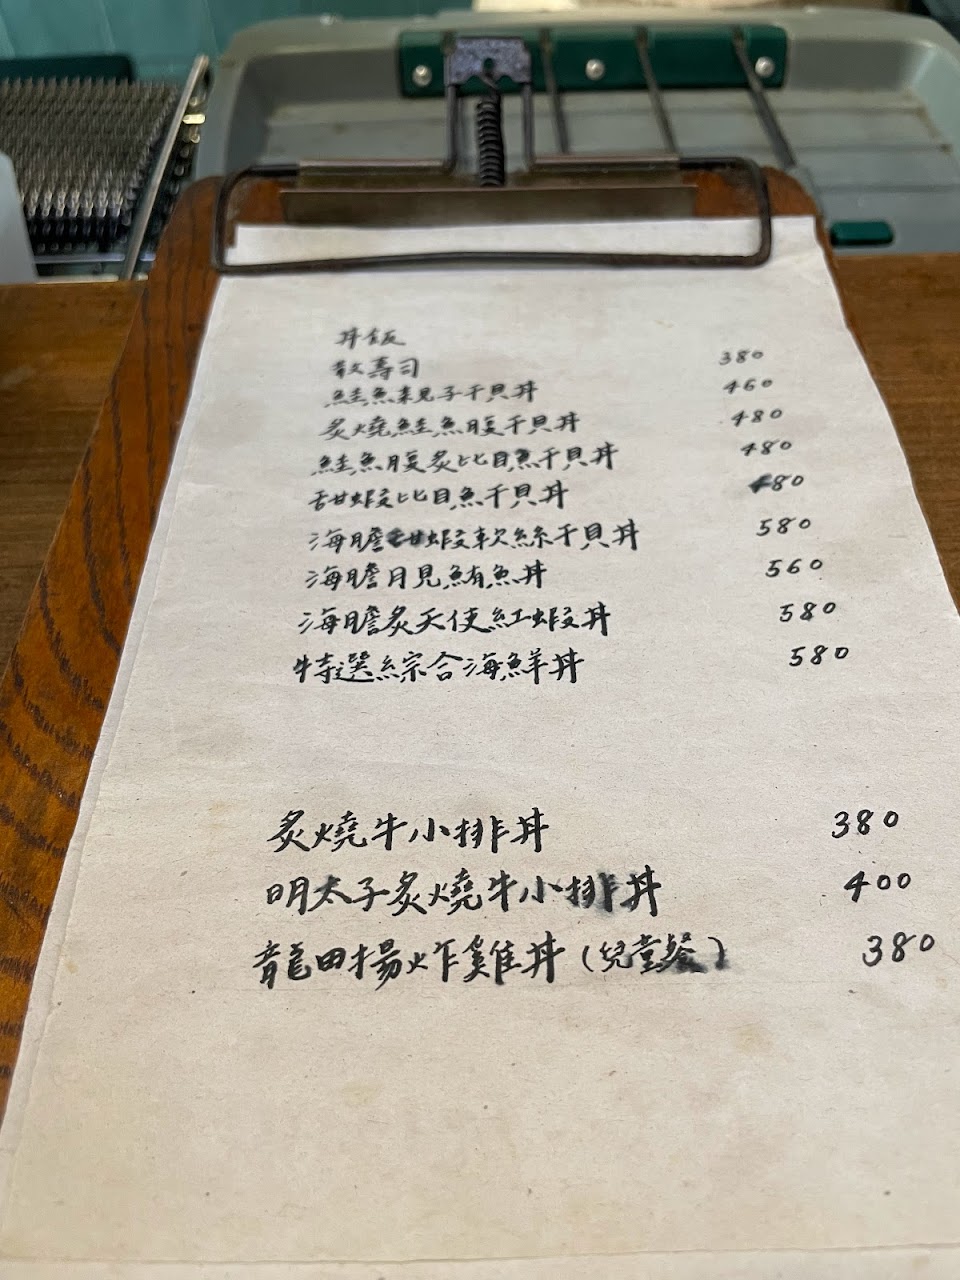 丼飯
散壽司 380
鮭魚親子干貝丼 460
炙燒鮭魚腹干貝丼 480
鮭魚腹炙比目魚干貝丼 480
甜蝦比目魚干貝丼 480
海膽甜蝦軟絲干貝丼 580
海膽月見鮪魚丼 560
海膽炙天使紅蝦丼 580
特選綜合海鮮丼 580
炙燒牛小排丼 380
明太子炙燒牛小排丼 400
龍田揚炸雞丼（兒童餐） 380